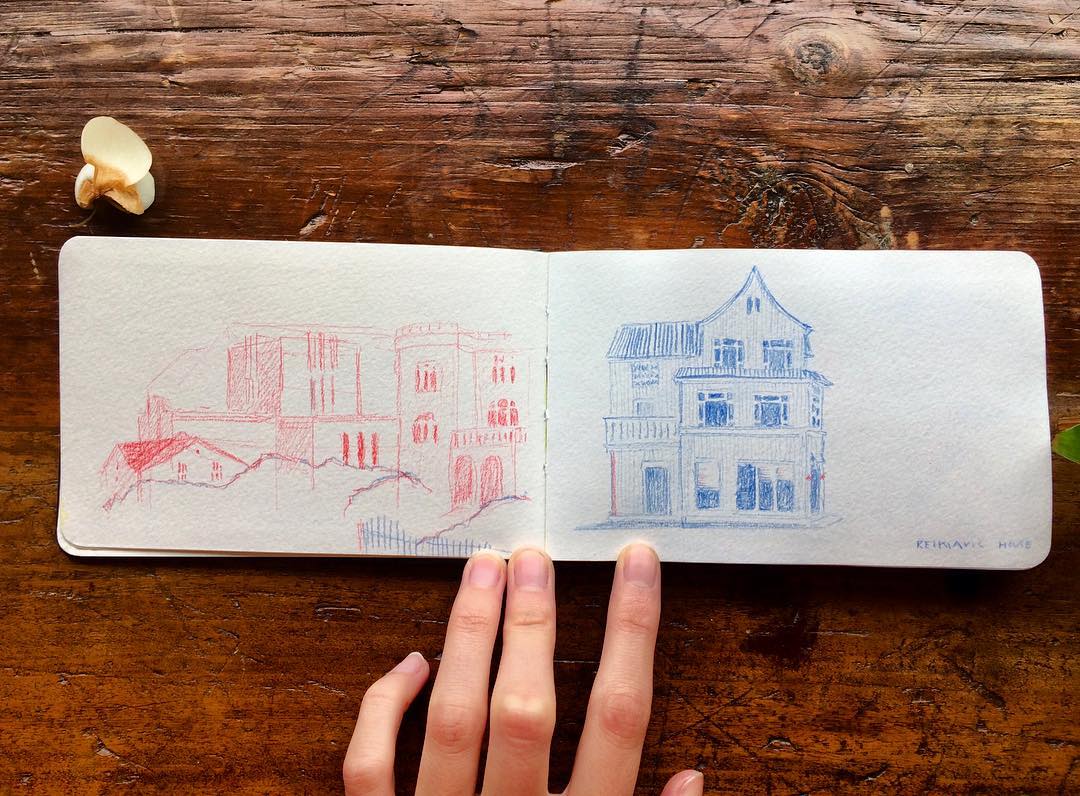 REIKIAVIK HOUSE